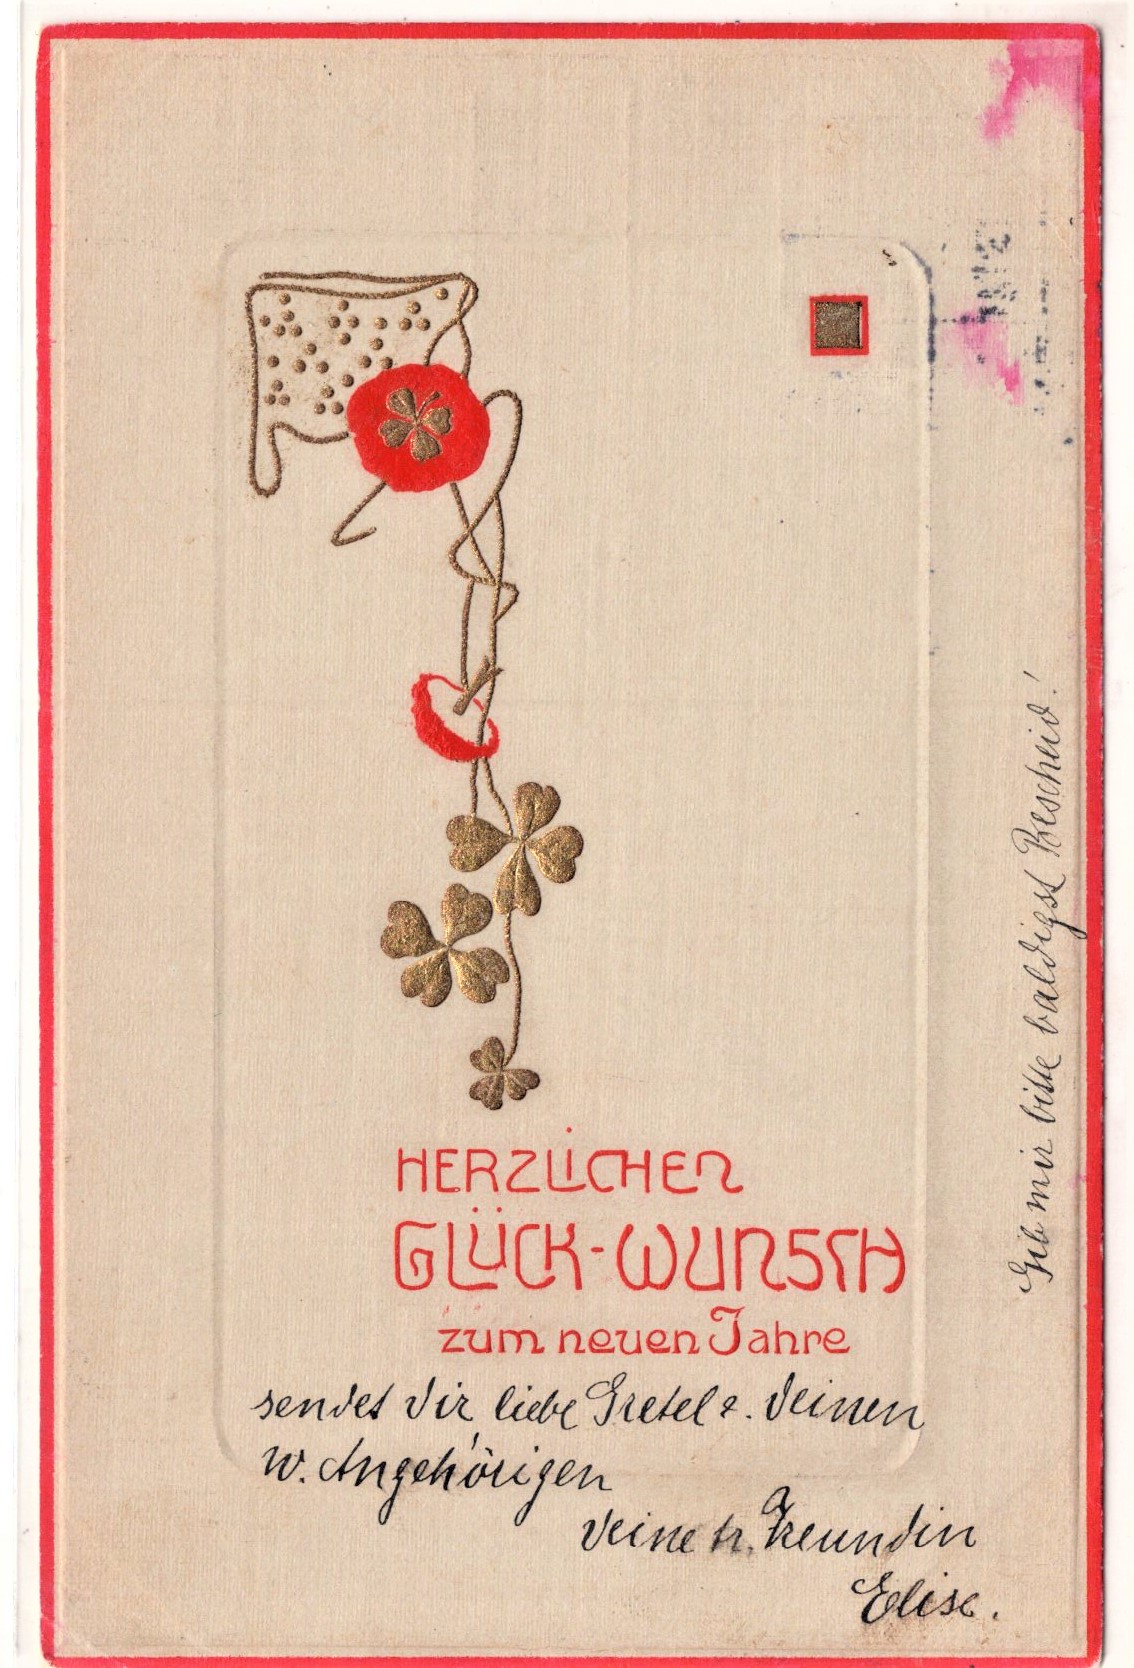 HERZLICHEN
GLÜCK-WUNSCH
zum neuen Jahre
sendet dir liebe Gretel &. deinen
w. Angehörigen
deine tr. Freundin
Elise.
Gib mir bitte baldigst Bescheid!